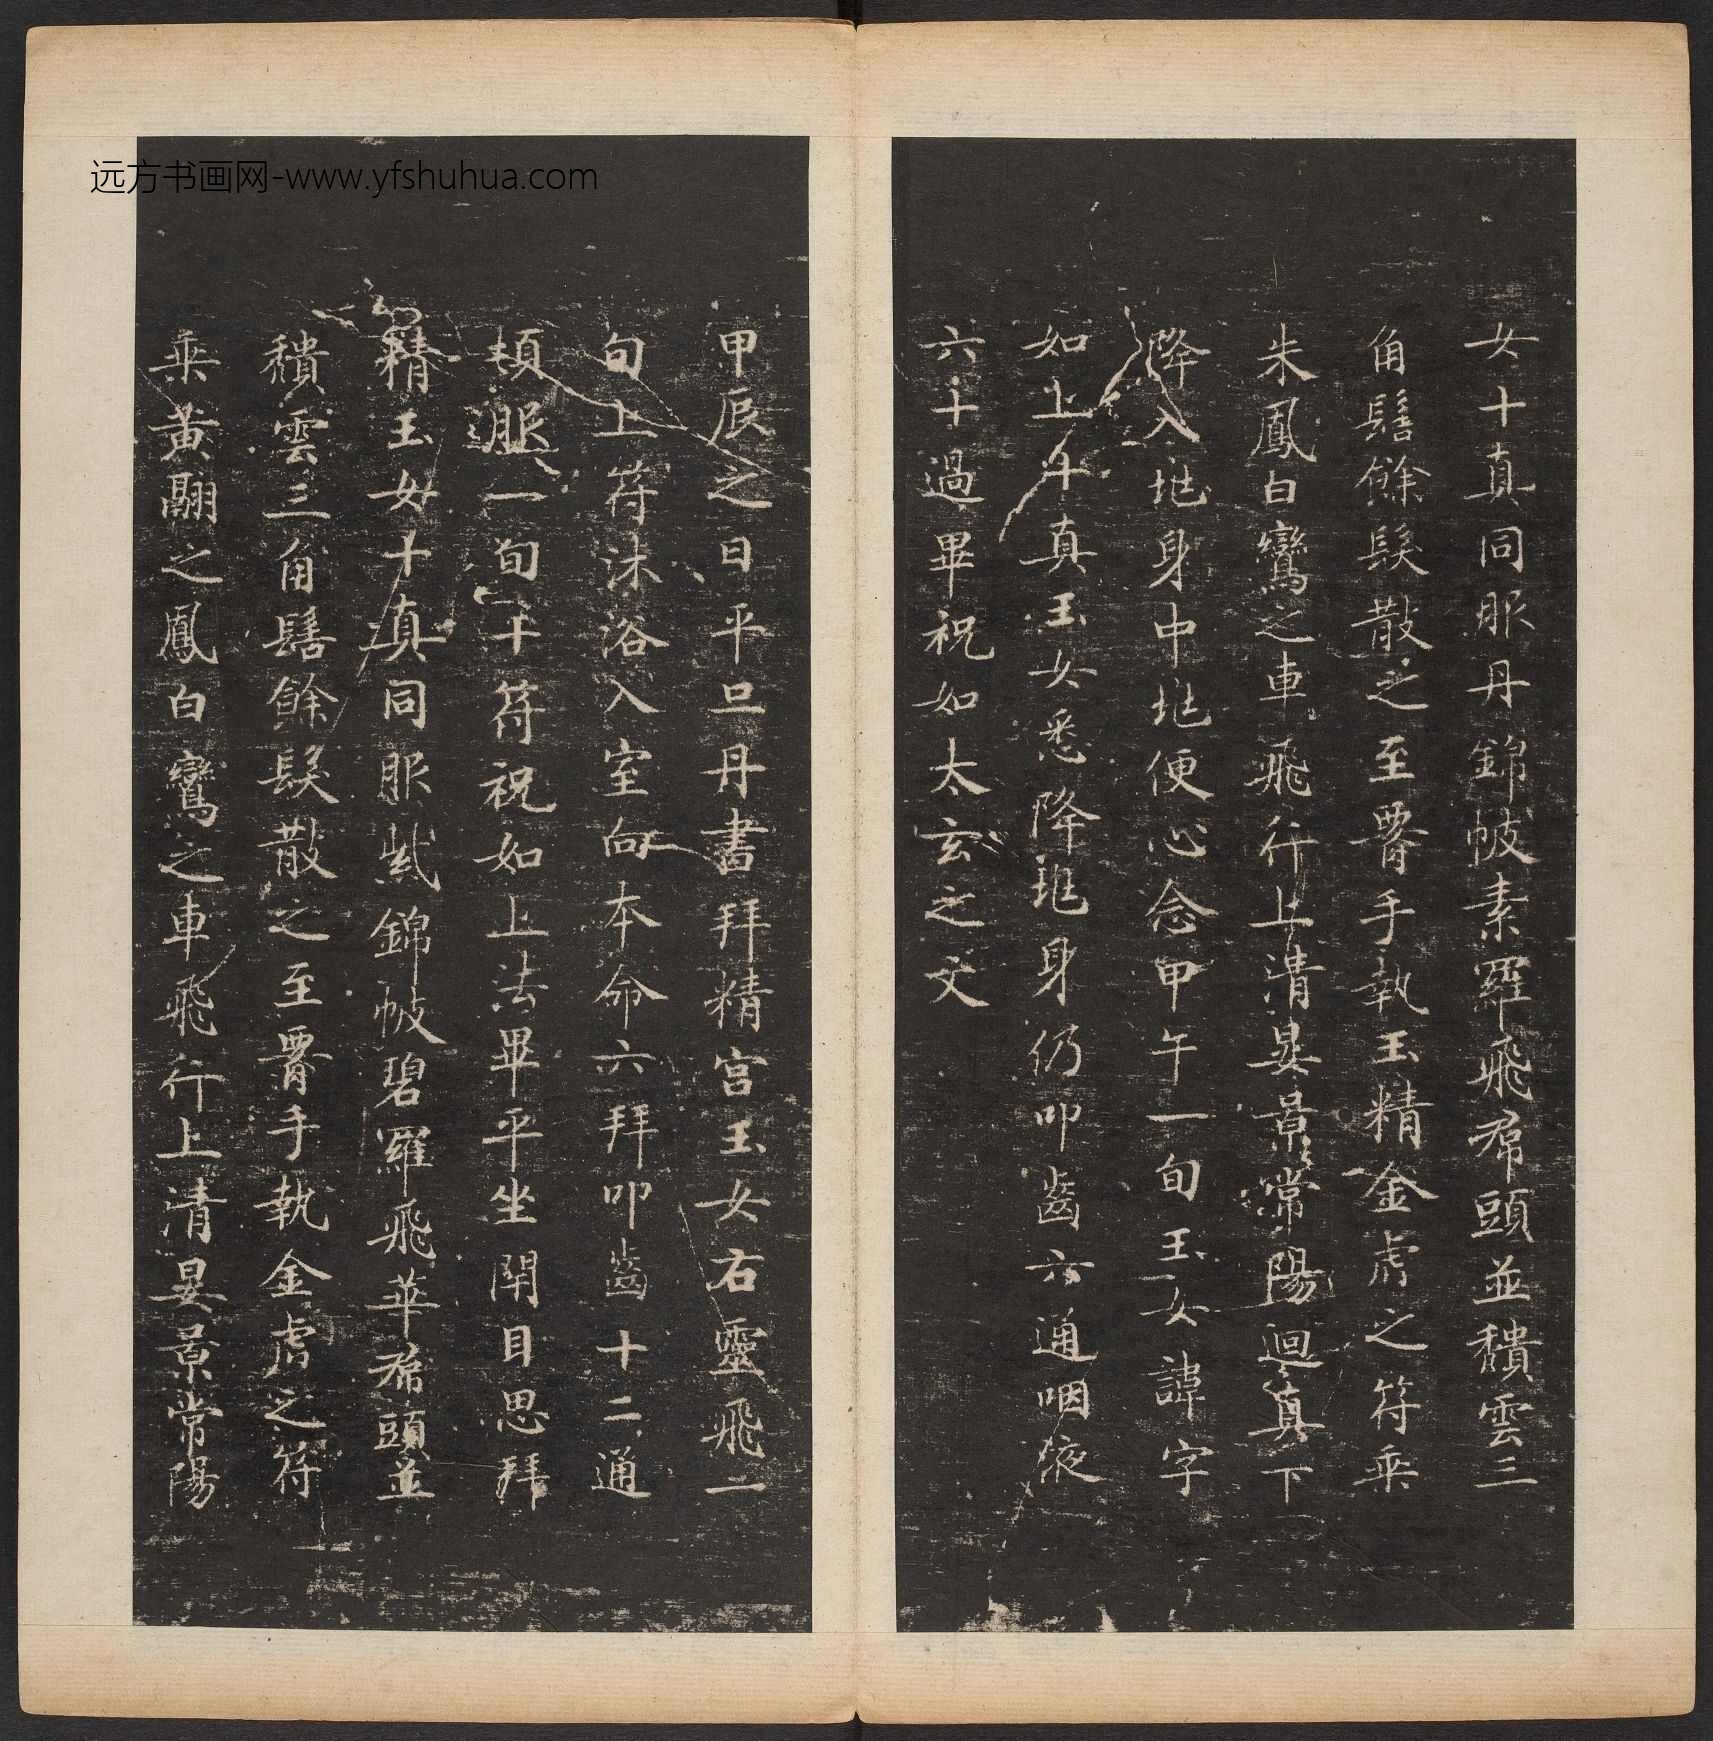 女十真同服丹錦帔素羅飛帬頭並頽雲三
角髻餘髮散之至署手執玉精金虎之符乘
朱鳳白鸞之車飛行上清晏景常陽迴真下
降入𡊄身中𡊄便心念甲午一旬玉女諱字
如上午真玉女悉降𡊄身仍叩齒六通咽液
六十過畢祝如太玄之文
甲辰之日平旦丹書拜精宫玉女右靈飛一
旬上符沐浴入室向本命六拜叩齒十二通
頓服一旬十符祝如上法畢平坐閉目思拜
精玉女十真同服紫錦帔碧羅飛華帬頭並
頽雲三角髻餘髮散之至署手執金虎之符
乘黃翮之鳳白鸞之車飛行上清晏景常陽
远方书画网-www.yfshuhua.com